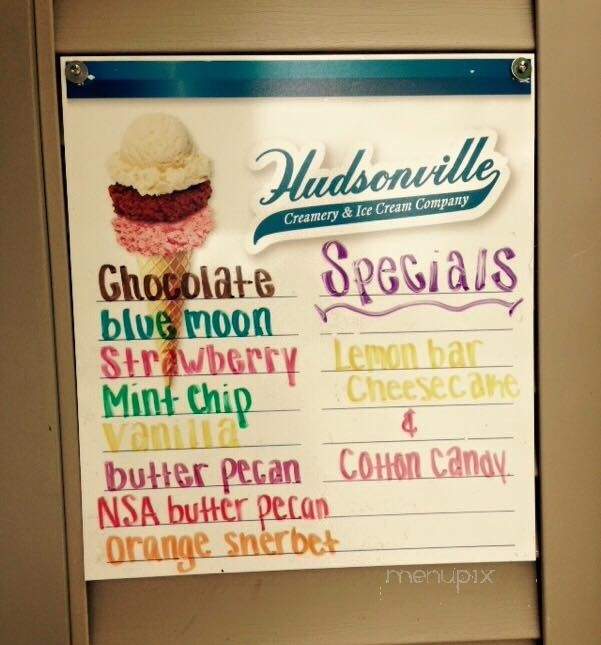 Hudsonville
Creamery & Ice Cream Company
Chocolate
blue moon
Strawberry
Mint Chip
Vanilla
butter Pecan
NSA butter Pecan
Orange Sherbet
Specials
Lemon bar
Cheesecake
&
Cotton Candy
menupix